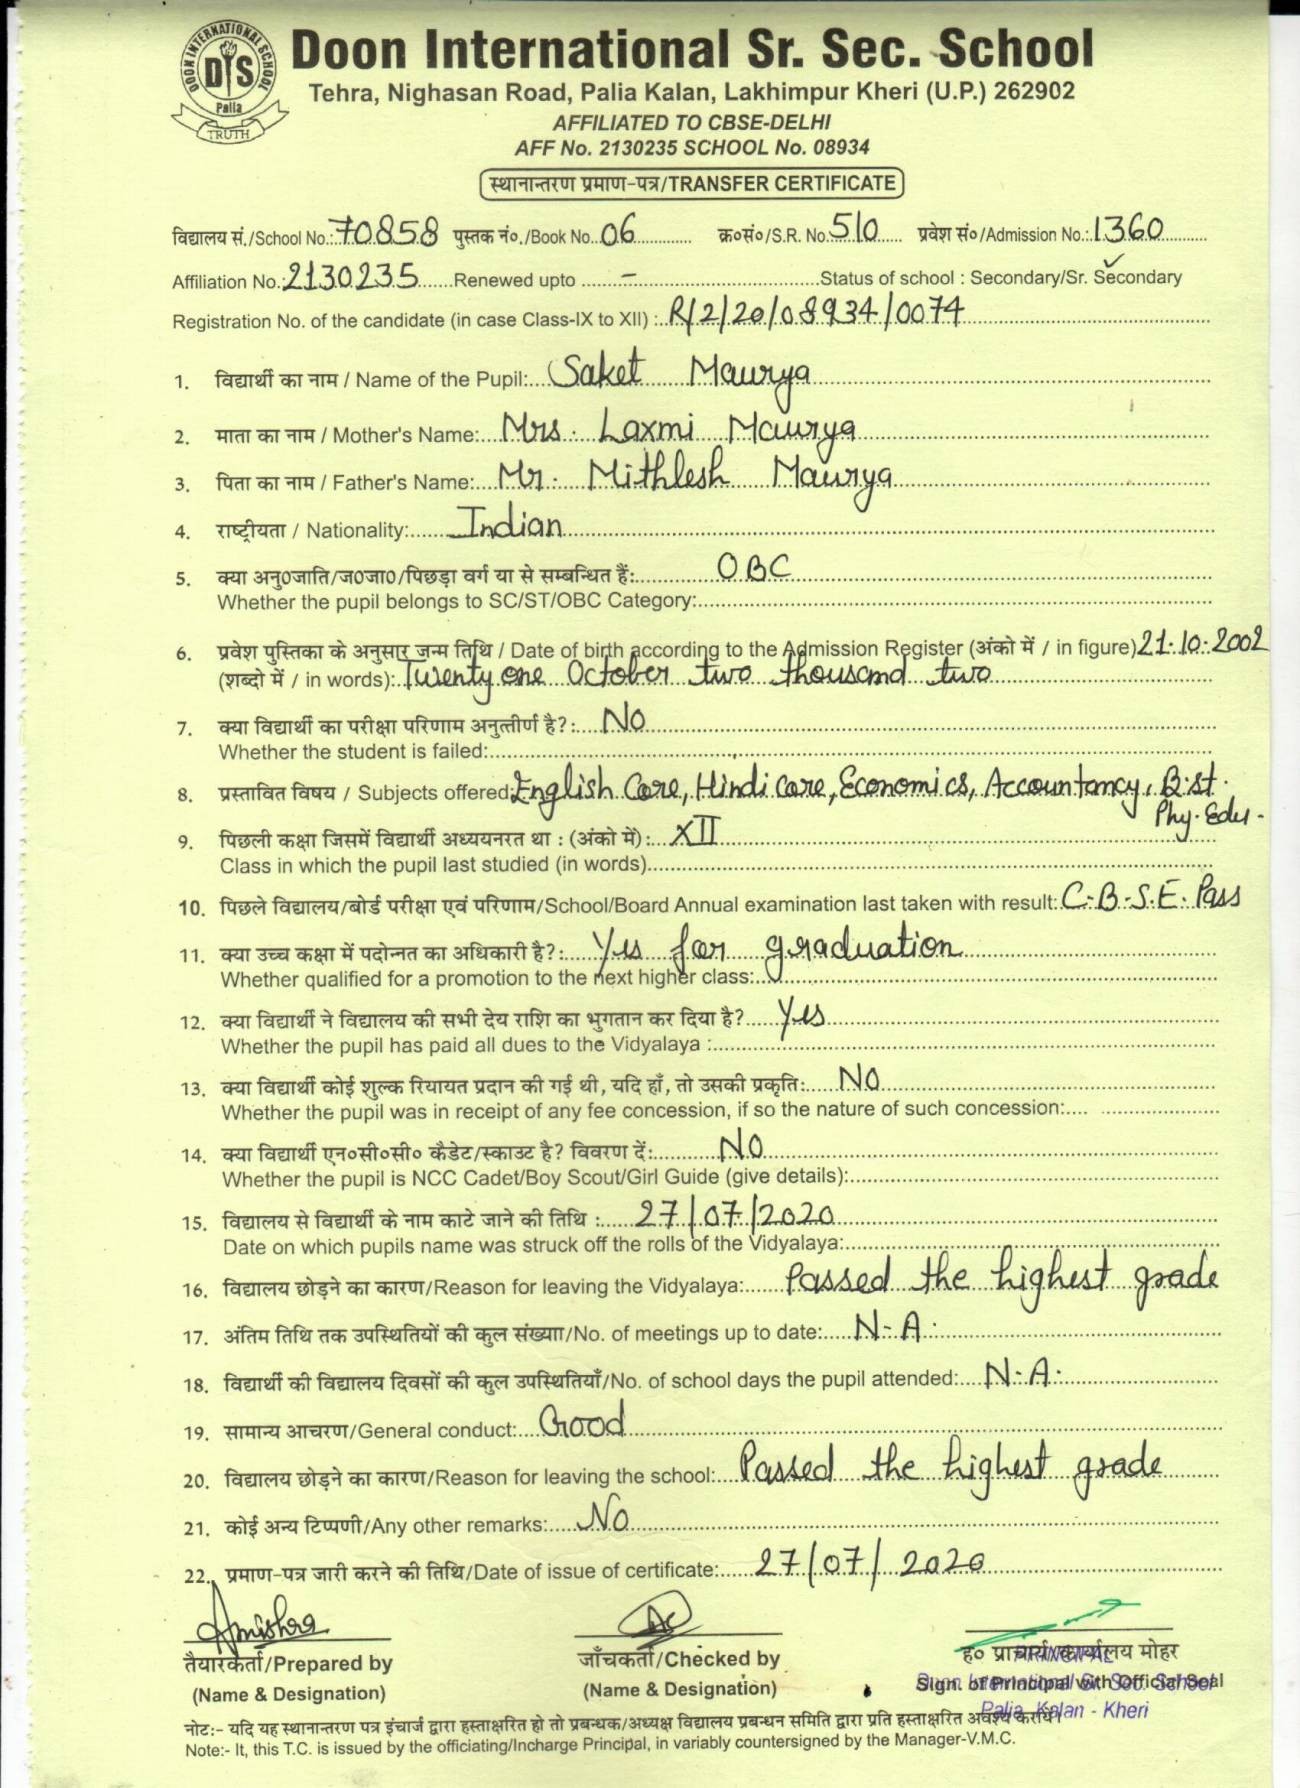 DOON INTERNATIONAL SCHOOL
DIS
Palia
TRUTH
Doon International Sr. Sec. School
Tehra, Nighasan Road, Palia Kalan, Lakhimpur Kheri (U.P.) 262902
AFFILIATED TO CBSE-DELHI
AFF No. 2130235 SCHOOL No. 08934
स्थानान्तरण प्रमाण-पत्र/TRANSFER CERTIFICATE
विद्यालय सं./School No.: 70858 पुस्तक नं०./Book No. 06 क्र०सं०/S.R. No. 510 प्रवेश सं०/Admission No.: 1360
Affiliation No.: 2130235 Renewed upto - Status of school : Secondary/Sr. Secondary ✓
Registration No. of the candidate (in case Class-IX to XII) : R/2/20/08934/0074
1. विद्यार्थी का नाम / Name of the Pupil: Saket Maurya
2. माता का नाम / Mother's Name: Mrs. Laxmi Maurya
3. पिता का नाम / Father's Name: Mr. Mithlesh Maurya
4. राष्ट्रीयता / Nationality: Indian
5. क्या अनु०जाति/ज०जा०/पिछड़ा वर्ग या से सम्बन्धित हैं: OBC
Whether the pupil belongs to SC/ST/OBC Category:
6. प्रवेश पुस्तिका के अनुसार जन्म तिथि / Date of birth according to the Admission Register (अंको में / in figure) 21.10.2002
(शब्दो में / in words): Twenty one October two thousand two
7. क्या विद्यार्थी का परीक्षा परिणाम अनुत्तीर्ण है?: No
Whether the student is failed:
8. प्रस्तावित विषय / Subjects offered: English Core, Hindi core, Economics, Accountancy, B.st.
Phy. Edu.
9. पिछली कक्षा जिसमें विद्यार्थी अध्ययनरत था : (अंको में) : XII
Class in which the pupil last studied (in words)
10. पिछले विद्यालय/बोर्ड परीक्षा एवं परिणाम/School/Board Annual examination last taken with result: C.B.S.E. Pass
11. क्या उच्च कक्षा में पदोन्नत का अधिकारी है?: Yes for graduation
Whether qualified for a promotion to the next higher class:
12. क्या विद्यार्थी ने विद्यालय की सभी देय राशि का भुगतान कर दिया है? Yes
Whether the pupil has paid all dues to the Vidyalaya :
13. क्या विद्यार्थी कोई शुल्क रियायत प्रदान की गई थी, यदि हाँ, तो उसकी प्रकृति: No
Whether the pupil was in receipt of any fee concession, if so the nature of such concession:
14. क्या विद्यार्थी एन०सी०सी० कैडेट/स्काउट है? विवरण दें: No
Whether the pupil is NCC Cadet/Boy Scout/Girl Guide (give details):
15. विद्यालय से विद्यार्थी के नाम काटे जाने की तिथि : 27/07/2020
Date on which pupils name was struck off the rolls of the Vidyalaya:
16. विद्यालय छोड़ने का कारण/Reason for leaving the Vidyalaya: Passed the highest grade
17. अंतिम तिथि तक उपस्थितियों की कुल संख्या/No. of meetings up to date: N.A.
18. विद्यार्थी की विद्यालय दिवसों की कुल उपस्थितियाँ/No. of school days the pupil attended: N.A.
19. सामान्य आचरण/General conduct: Good
20. विद्यालय छोड़ने का कारण/Reason for leaving the school: Passed the highest grade
21. कोई अन्य टिप्पणी/Any other remarks: No
22. प्रमाण-पत्र जारी करने की तिथि/Date of issue of certificate: 27/07/2020
Amishra
तैयारकर्ता/Prepared by जाँचकर्ता/Checked by ह० प्राचार्य कार्यालय मोहर
PRINCIPAL
(Name & Designation) (Name & Designation) Sign. of Principal with Official Seal
Doon International Sr. Sec. School
Palia Kalan - Kheri
नोट:- यदि यह स्थानान्तरण पत्र इंचार्ज द्वारा हस्ताक्षरित हो तो प्रबन्धक/अध्यक्ष विद्यालय प्रबन्धन समिति द्वारा प्रति हस्ताक्षरित अवश्य करायें।
Note:- It, this T.C. is issued by the officiating/Incharge Principal, in variably countersigned by the Manager-V.M.C.